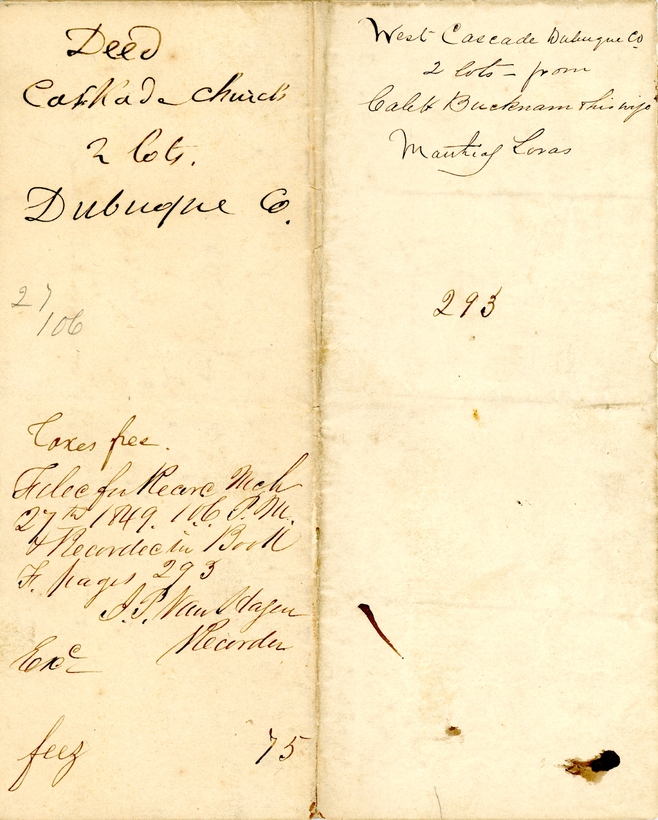 Deed
Caskade church
2 lots.
Dubuque Co.
27
106
Taxes free.
Filed for Record Mch
27th 1849. 1.06 P.M.
& Recorded in Book
F. pages 293
J.P. Van Hagen
Recorder
fees 75
West Cascade Dubuque Co
2 lots - from
Caleb Bucknam & his wife
Mathias Loras
293